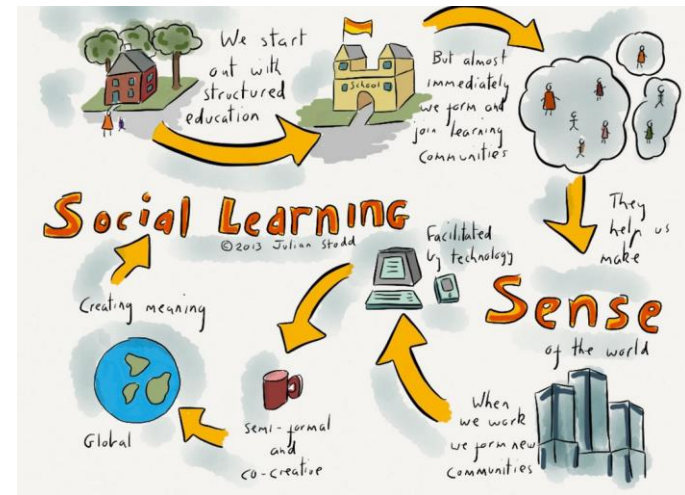 We start
out with
structured
education
School
But almost
immediately
we form and
join learning
Communities
They
help us
make
Sense
of the world
When
we work
we form new
Communities
Facilitated
by technology
semi-formal
and
co-creative
Global
Creating meaning
Social Learning
©2013 Julian Stodd